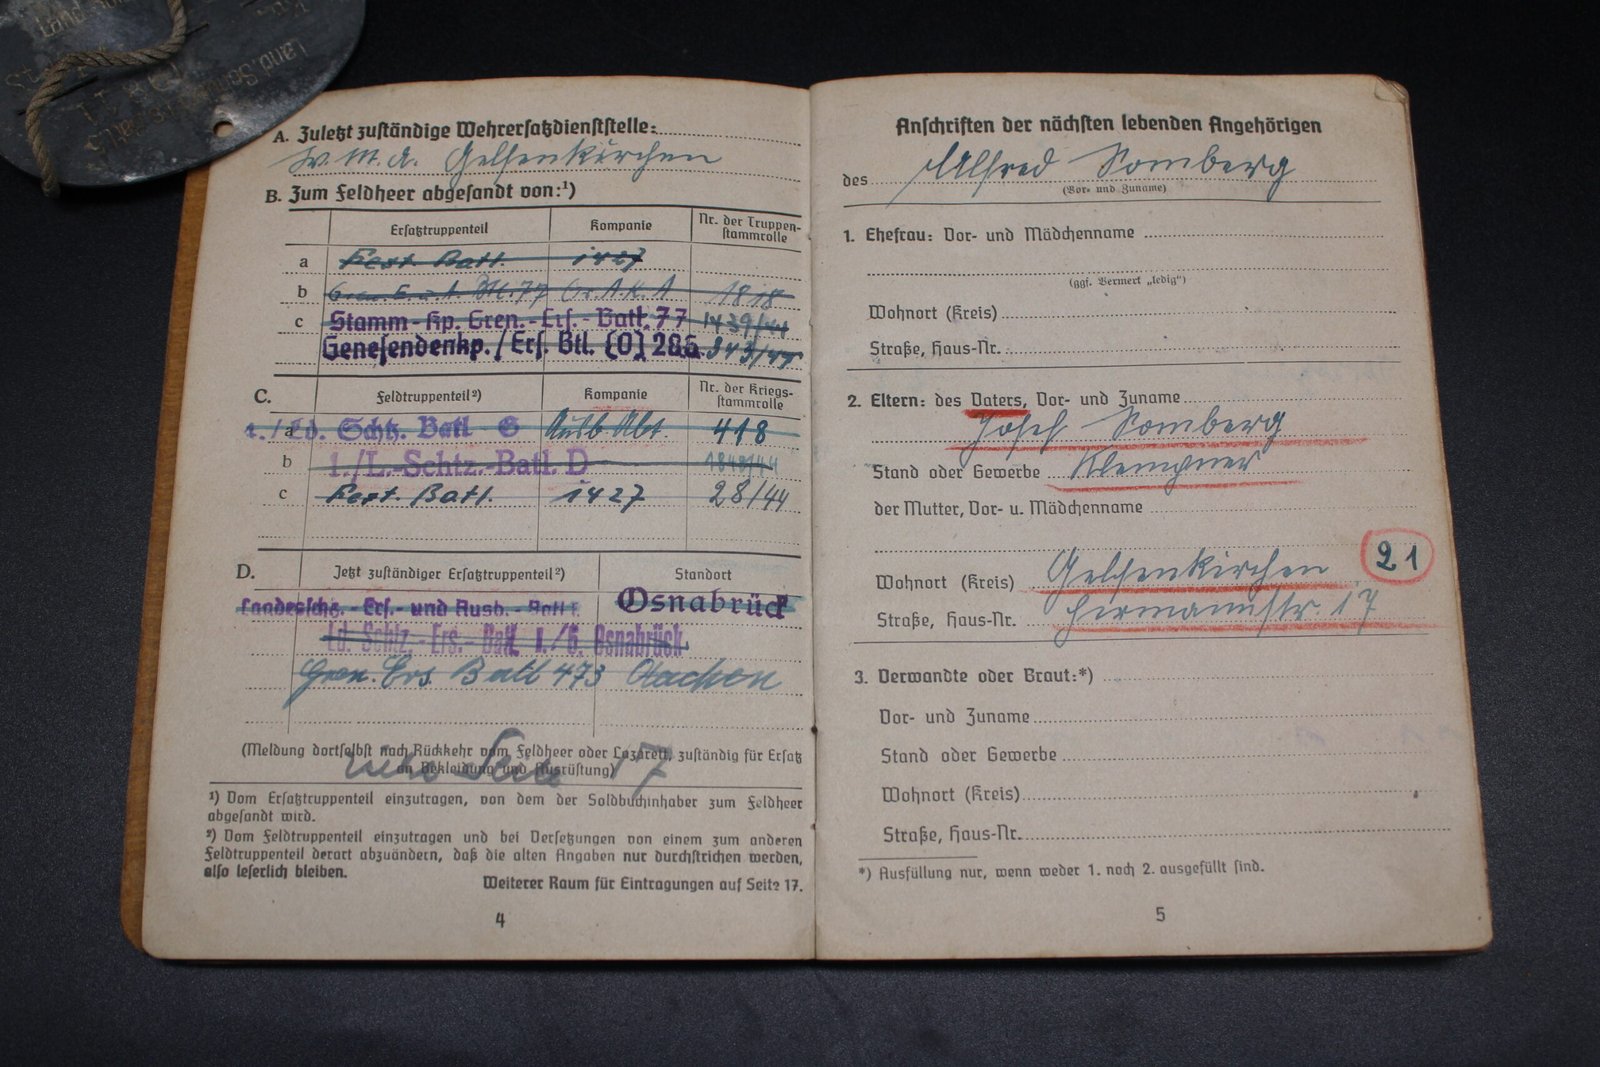 A. Zuletzt zuständige Wehrersatzdienststelle:
W. M. A. Gelsenkirchen
B. Zum Feldheer abgesandt von:¹)
Ersatztruppenteil Kompanie Nr. der Truppen-
stammrolle
a Fest. Batl. 1427
b Gren. E. u. A. Btl. 77 1818
c Stamm-Kp. Gren.-Ers.-Batl. 77 1439/44
Genesendenkp./Ers. Btl. (O) 286 343/44
C. Feldtruppenteil²) Kompanie Nr. der Kriegs-
stammrolle
a 1./Ld. Schtz. Batl G Ausb. Abt. 418
b 1./L.-Schtz.-Batl. D
c Fest. Batl. 1427 28/44
D. Jetzt zuständiger Ersatztruppenteil²) Standort
Landesschtz.-Ers.- und Ausb.-Batl 1. Osnabrück
Ld. Schtz.-Ers.-Batl. 1./6. Osnabrück
Gren. Ers Batl 473 Aachen
(Meldung dortselbst nach Rückkehr vom Feldheer oder Lazarett, zuständig für Ersatz
an Bekleidung und Ausrüstung)
siehe Seite 17
¹) Vom Ersatztruppenteil einzutragen, von dem der Soldbuchinhaber zum Feldheer
abgesandt wird.
²) Vom Feldtruppenteil einzutragen und bei Versetzungen von einem zum anderen
Feldtruppenteil derart abzuändern, daß die alten Angaben nur durchstrichen werden,
also leserlich bleiben.
Weiterer Raum für Eintragungen auf Seite 17.
4
Anschriften der nächsten lebenden Angehörigen
des Alfred Somberg
(Vor- und Zuname)
1. Ehefrau: Vor- und Mädchenname
(ggf. Vermerk „ledig")
Wohnort (Kreis)
Straße, Haus-Nr.
2. Eltern: des Vaters, Vor- und Zuname
Josef Somberg
Stand oder Gewerbe Klempner
der Mutter, Vor- u. Mädchenname
21
Wohnort (Kreis) Gelsenkirchen
Straße, Haus-Nr. Hermannstr. 17
3. Verwandte oder Braut:*)
Vor- und Zuname
Stand oder Gewerbe
Wohnort (Kreis)
Straße, Haus-Nr.
*) Ausfüllung nur, wenn weder 1. noch 2. ausgefüllt sind.
5